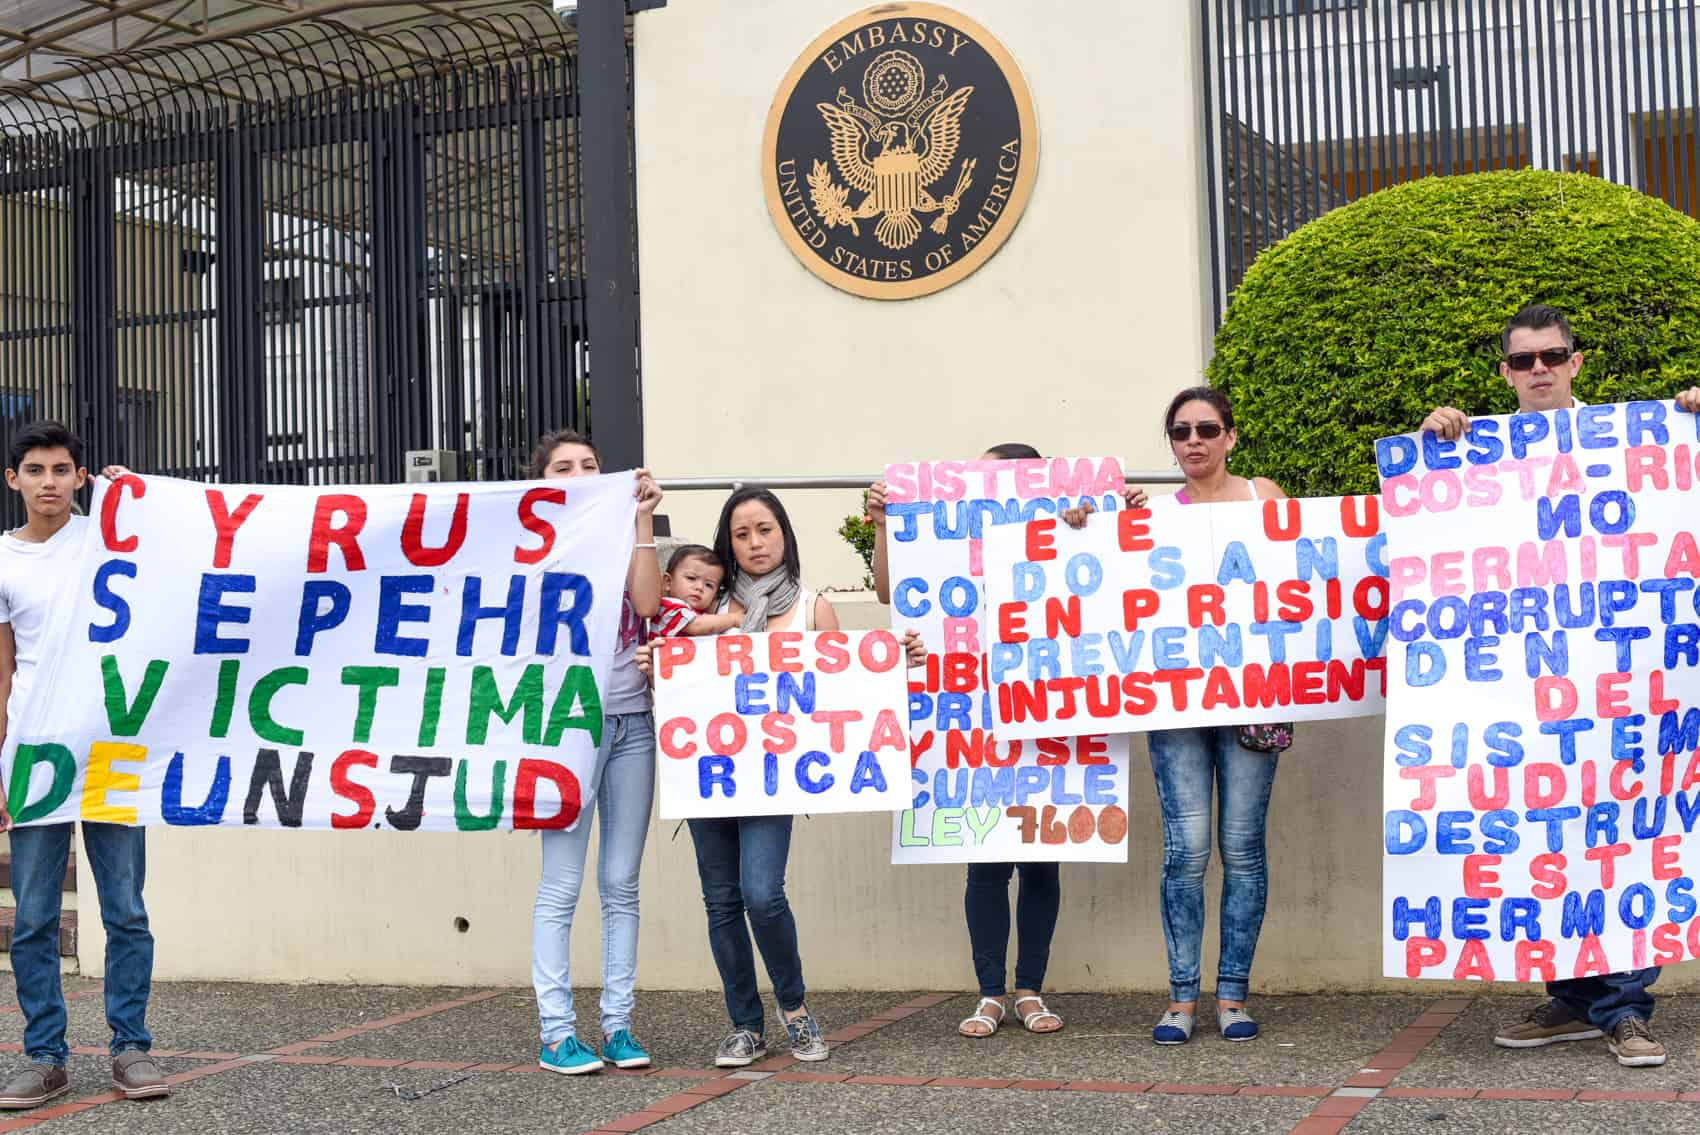 EMBASSY
UNITED STATES OF AMERICA
CYRUS
SEPEHR
VICTIMA
DE UN S.JUD
PRESO
EN
COSTA
RICA
SISTEMA
JUDICIAL
Y NO SE
CUMPLE
LEY 7600
EE UU
EN PRISIO
PREVENTIV
INJUSTAMENT
DESPIER
COSTA-RIC
NO
PERMITA
CORRUPTO
DENTR
DEL
SISTEM
JUDICIA
DESTRUY
ESTE
HERMOS
PARAISO